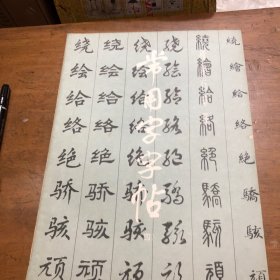 常用字字帖
繞繪給絡絕驕駭頑
繞繪給絡絕驕駭頑
绕绘给络绝骄骇顽
绕绘给络绝骄骇顽
绕绘给络绝骄骇顽